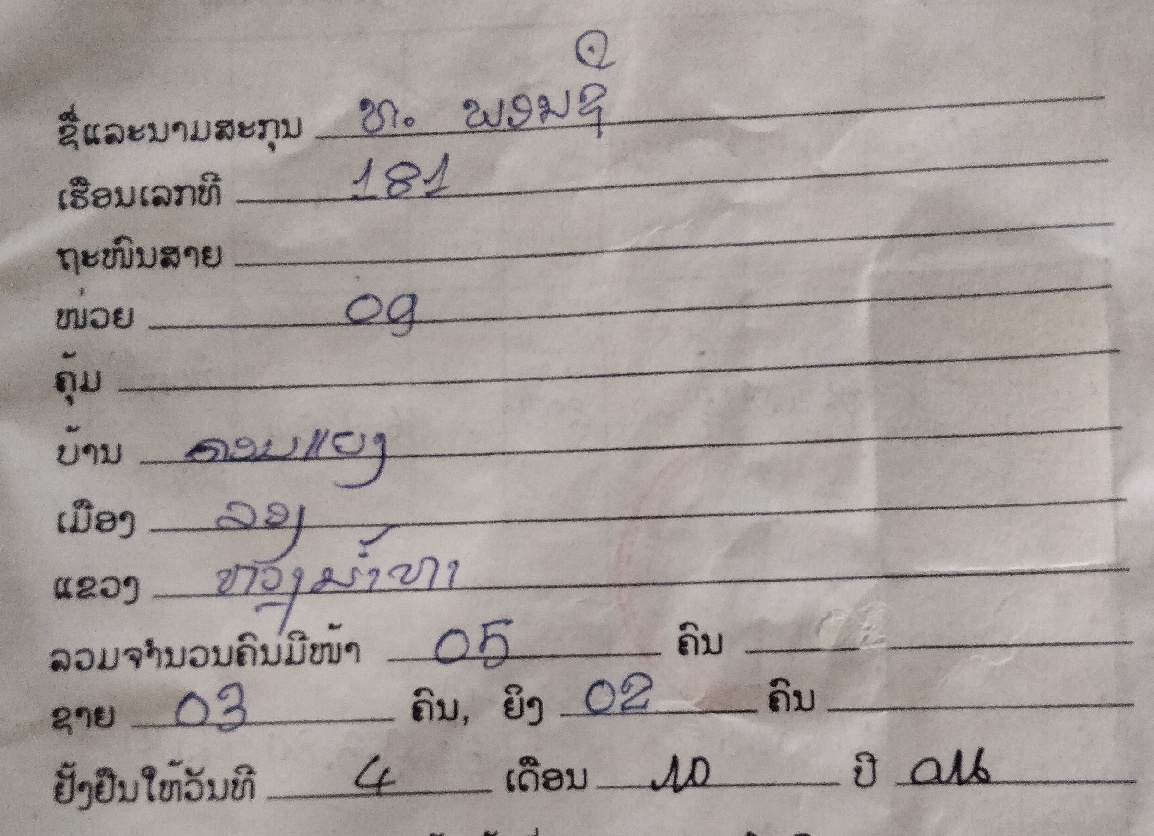 ຊື່ແລະນາມສະກຸນ ທ. ພອນຊີ
ເຮືອນເລກທີ 181
ຖະໜົນສາຍ
ໜ່ວຍ 09
ຄຸ້ມ
ບ້ານ ດອນແຍງ
ເມືອງ ລອງ
ແຂວງ ຫຼວງນ້ຳທາ
ລວມຈຳນວນຄົນມີໜ້າ 05 ຄົນ
ຊາຍ 03 ຄົນ, ຍິງ 02 ຄົນ
ຢັ້ງຢືນໃຫ້ວັນທີ 4 ເດືອນ 10 ປີ